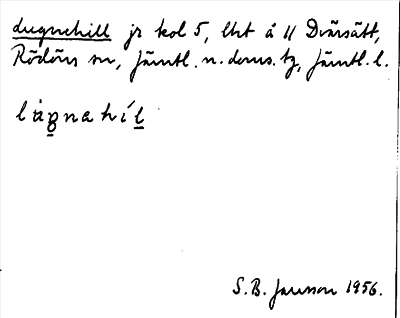 lugnehill jr kol 5, lht å 11 Dvärsätt,
Rödöns sn, Jämtl. n. doms. tg, Jämtl. l.
S. B. Jansson 1956.